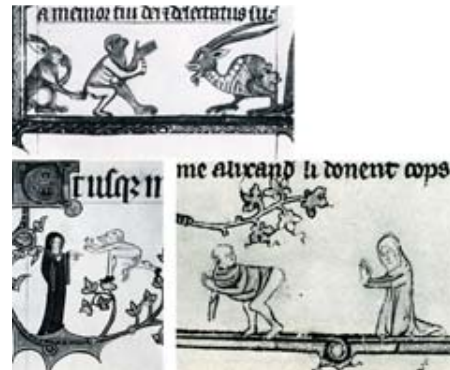 A memor fui dei & delectatus su
me alixand li donent cops